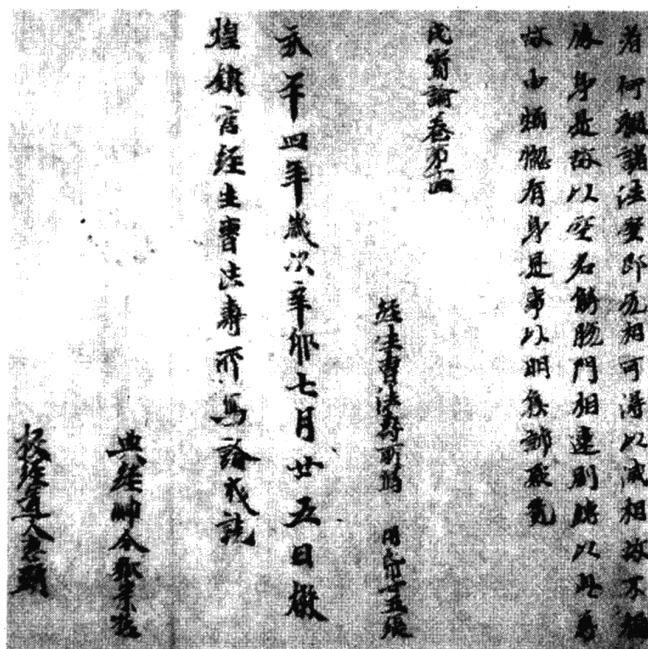 者何觀諸法空即无相可得以滅相故不復
勝身是故以空名解脫門相連別時以是等
故由煩惱有身是事以明集諦聚竟
成實論卷第十四
經生曹法壽所寫 用紙廿五張
永平四年歲次辛卯七月廿五日敦
煌鎮官經生曹法壽所寫論成訖
典經帥令狐崇哲
校經道人惠顯